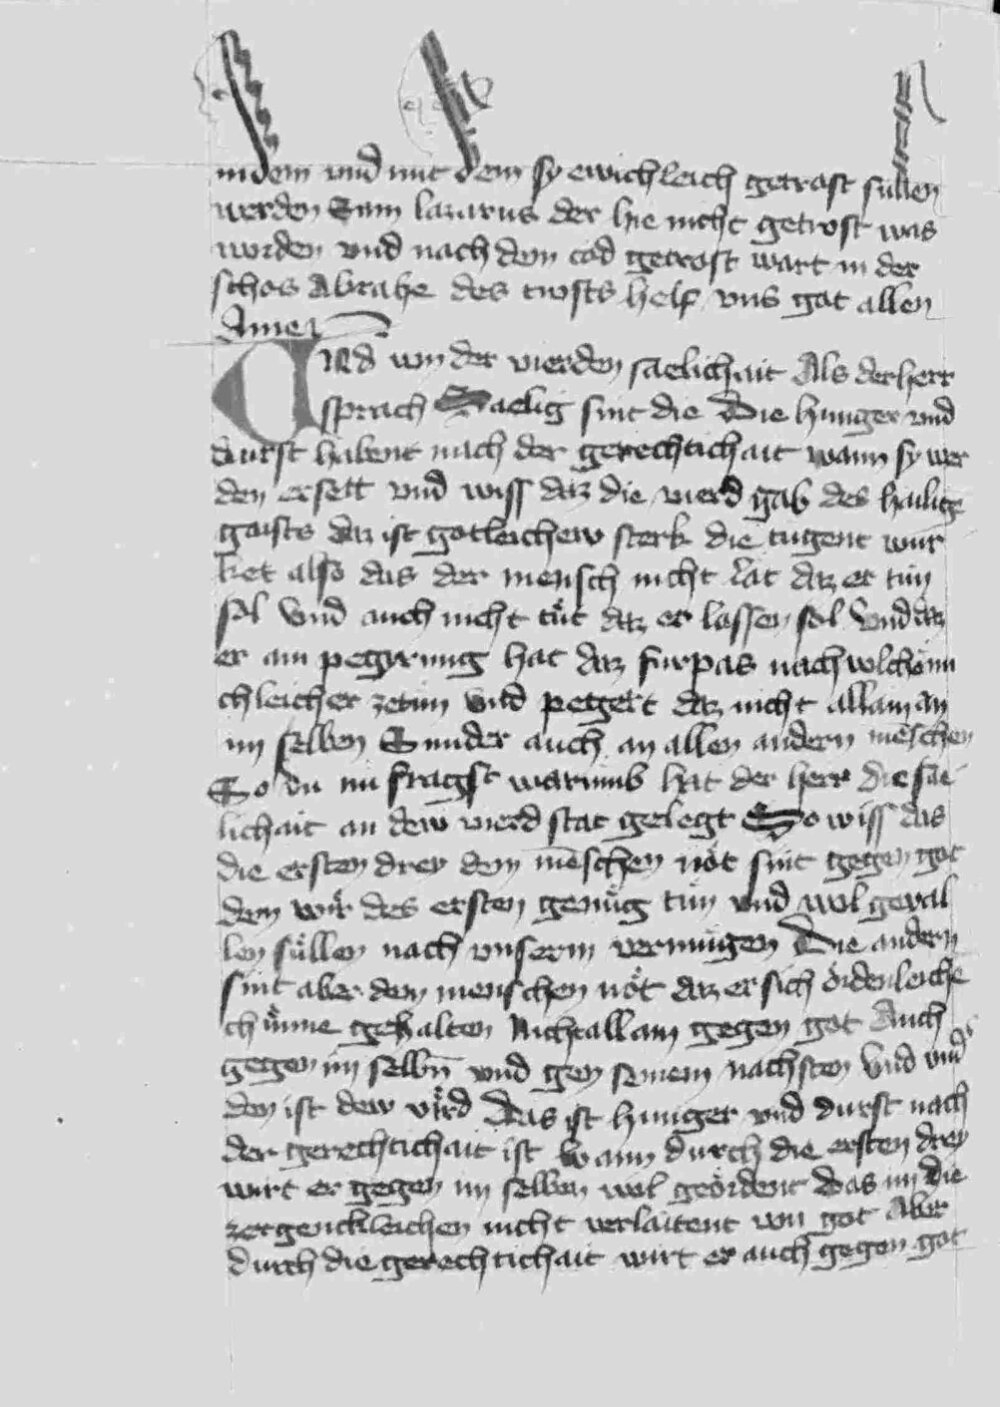 indem vnd mit dem sy ewichleich getrost sullen
werden Sam lazarus der hie nicht getrost was
worden vnd nach dem tod getrost wart in der
schos Abrahe des trosts helf vns got allen
Amen
Und von der vierden saelichait Als der herr
sprach Saelig sint die Die hunger vnd
durst habent nach der gerechtichait wann sy wer
den ersett vnd wiss daz die vierd gab des heilige
gaists daz ist gotleichew sterk die tugent wur
ket also das der mensch nicht lat daz er tun
sol Vnd auch nicht tut daz er lassen sol Vnd daz
er ain pegirung hat daz furpas nach volchom
chleicher zetun vnd pegert daz nicht allain an
im selben Sunder auch an allen andern menschen
So du nu fragst warumb hat der herr die sae
lichait an dew vierd stat gelegt So wiss das
die ersten drey dem menschen nöt sint gegen got
dem wir des ersten genüg tün vnd wol geval
len süllen nach vnserm vermugen Die andern
sint aber dem menschen nöt daz er sich ördenleiche
chünne gehalten Nicht allain gegen got Auch
gegen im selbn vnd gen seinem nachsten Vnd vnd
den ist dew vird Das ist hunger vnd durst nach
der gerechtichait ist Wann durch die ersten drey
wirt er gegen im selben wol geördent Das im die
zergenckleichen nicht verlaitent von got Aber
durch die gerechtichait wirt er auch gegen got